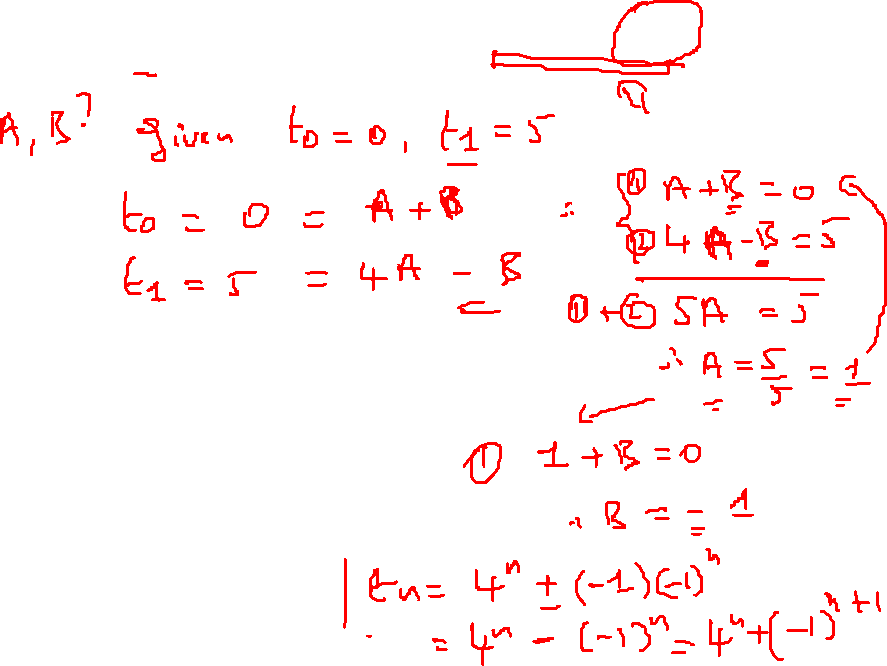 A, B? given t₀ = 0, t₁ = 5
t₀ = 0 = A + B
t₁ = 5 = 4A - B
∴ ① A + B = 0
② 4A - B = 5
① + ② 5A = 5
∴ A = 5/5 = 1
① 1 + B = 0
∴ B = - 1
tₙ = 4ⁿ + (-1)(-1)ⁿ
= 4ⁿ - (-1)ⁿ = 4ⁿ + (-1)ⁿ⁺¹